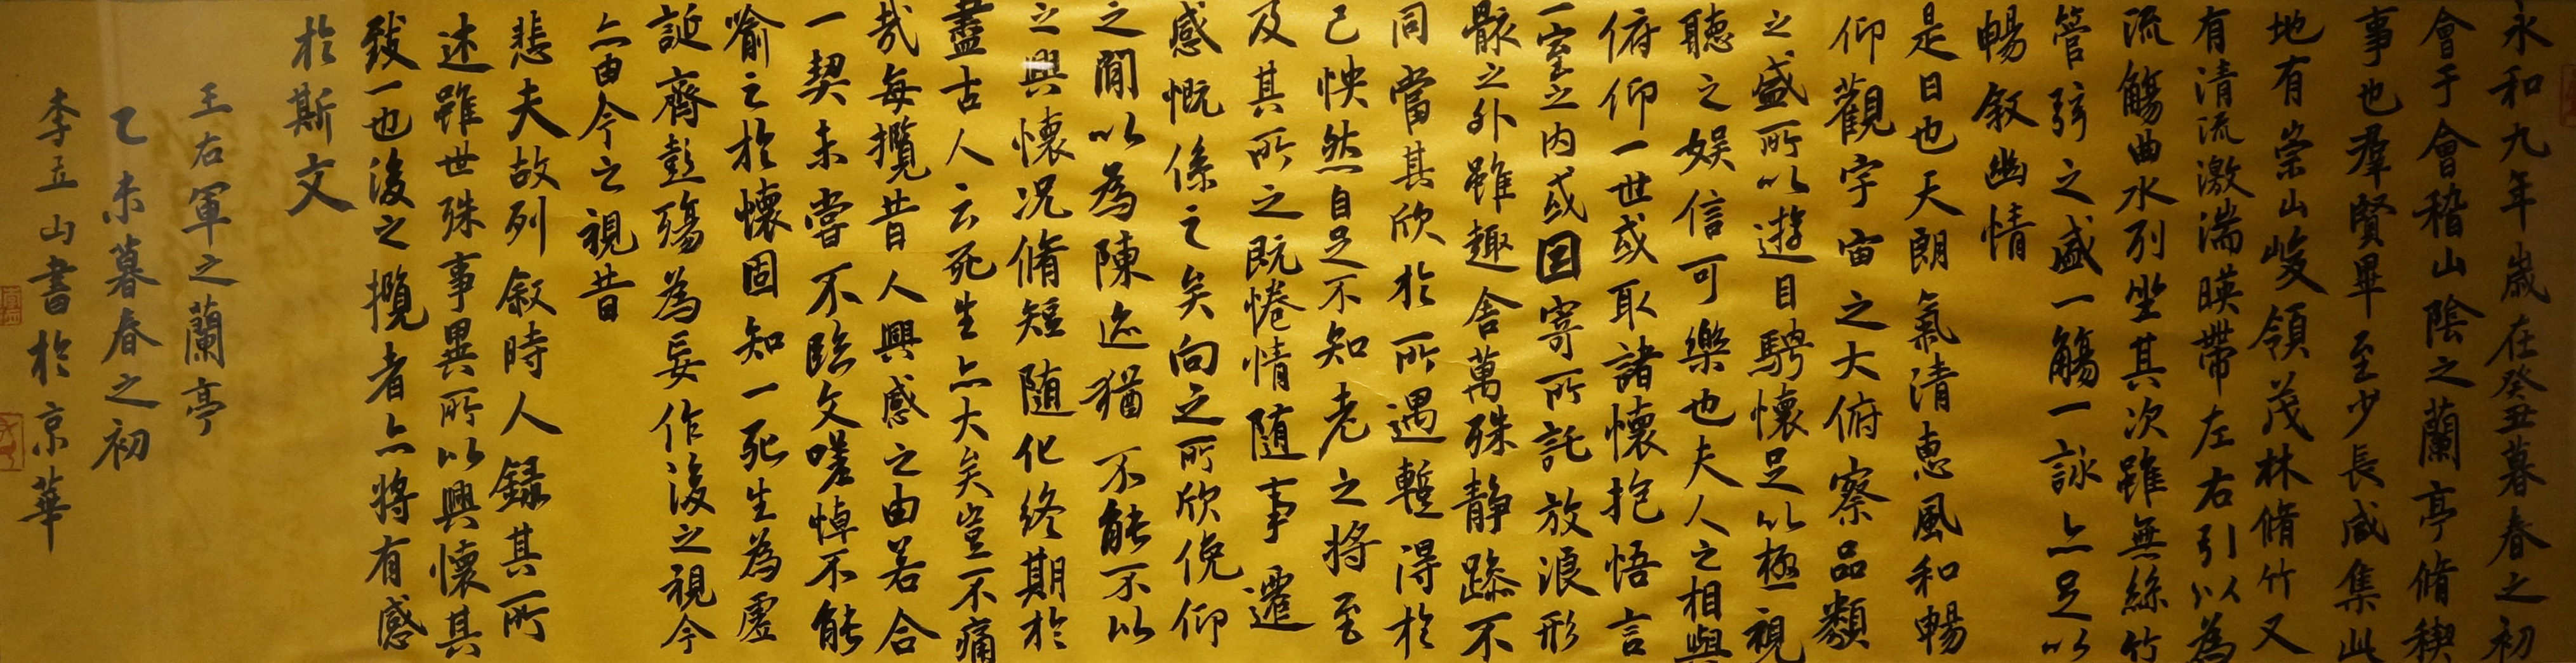 永和九年歲在癸丑暮春之初
會于會稽山陰之蘭亭脩稧
事也羣賢畢至少長咸集此
地有崇山峻領茂林脩竹又
有清流激湍暎帶左右引以為
流觴曲水列坐其次雖無絲竹
管弦之盛一觴一詠亦足以
暢叙幽情
是日也天朗氣清惠風和暢
仰觀宇宙之大俯察品類
之盛所以遊目騁懷足以極視
聽之娛信可樂也夫人之相與
俯仰一世或取諸懷抱悟言
一室之內或因寄所託放浪形
骸之外雖趣舍萬殊静躁不
同當其欣於所遇暫得於
己怏然自足不知老之將至
及其所之既惓情隨事遷
感慨係之矣向之所欣俛仰
之閒以為陳迹猶不能不以
之興懷況脩短隨化終期於
盡古人云死生亦大矣豈不痛
哉每攬昔人興感之由若合
一契未嘗不臨文嗟悼不能
喻之於懷固知一死生為虛
誕齊彭殤為妄作後之視今
亦由今之視昔
悲夫故列叙時人錄其所
述雖世殊事異所以興懷其
致一也後之攬者亦將有感
於斯文
王右軍之蘭亭
乙未暮春之初
李五山書於京華